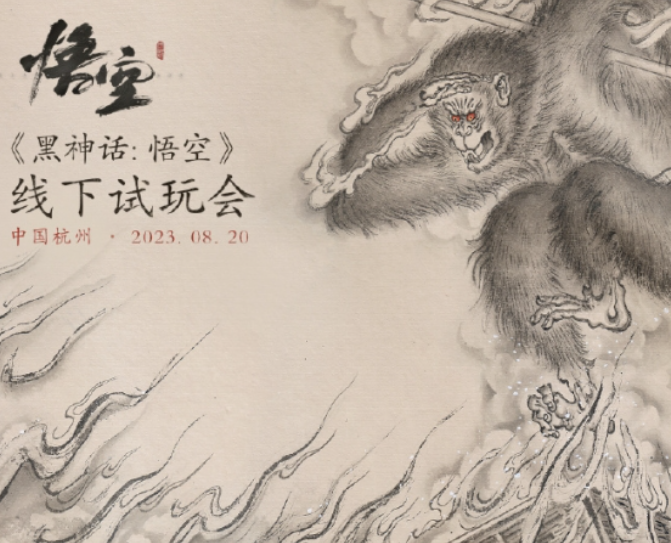 悟空
《黑神话: 悟空》
线下试玩会
中国杭州 · 2023. 08. 20